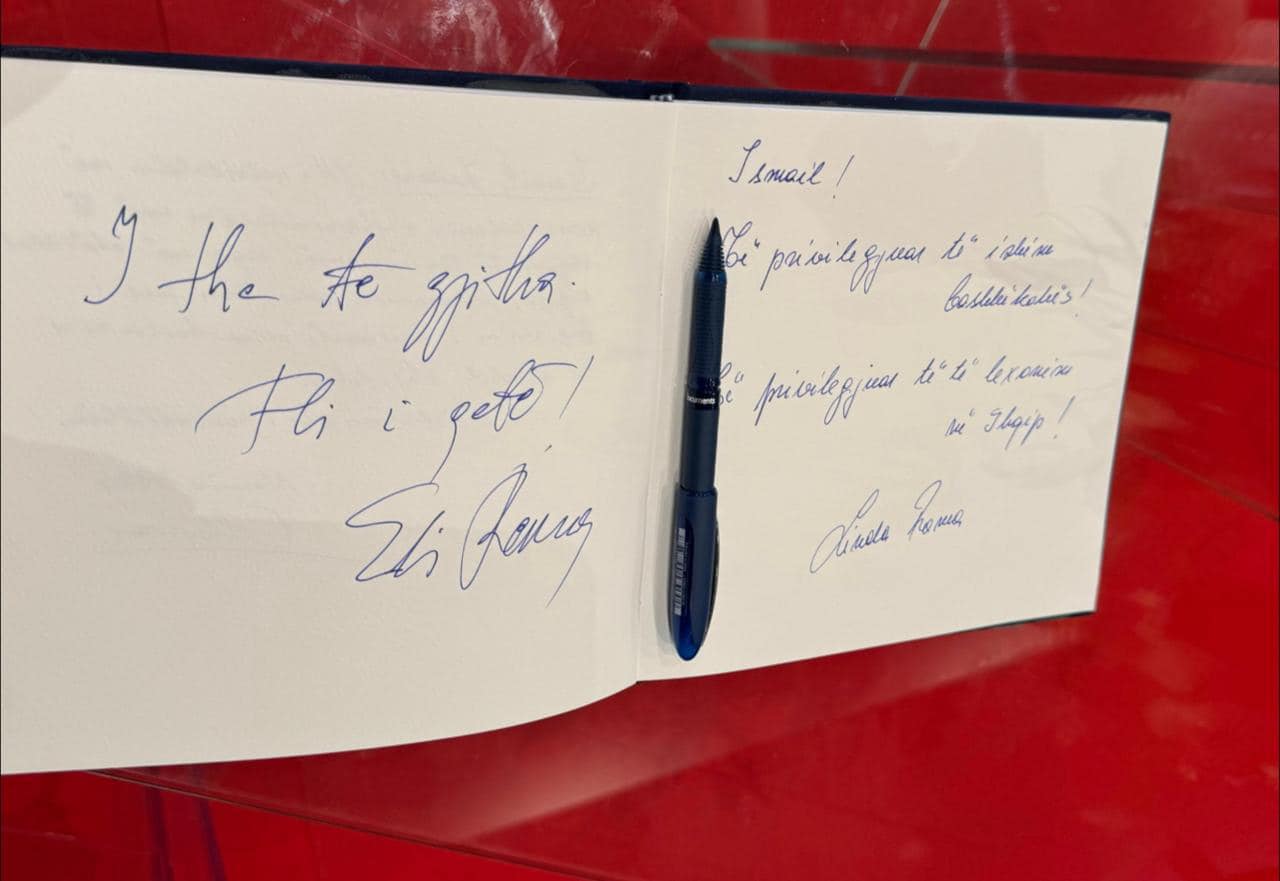 I the të gjitha.
Fli i qetë!
Ismail!
privilegjuar të ishim
bashkëkohës!
privilegjuar të të lexonim
në Shqip!
Linda Rama